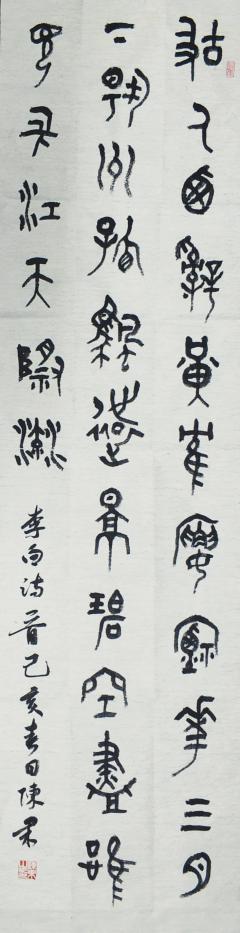 故人西辭黃鶴樓煙華三月
下揚州孤帆遠影碧空盡唯
見長江天際流
李白詩一首己亥春日陳